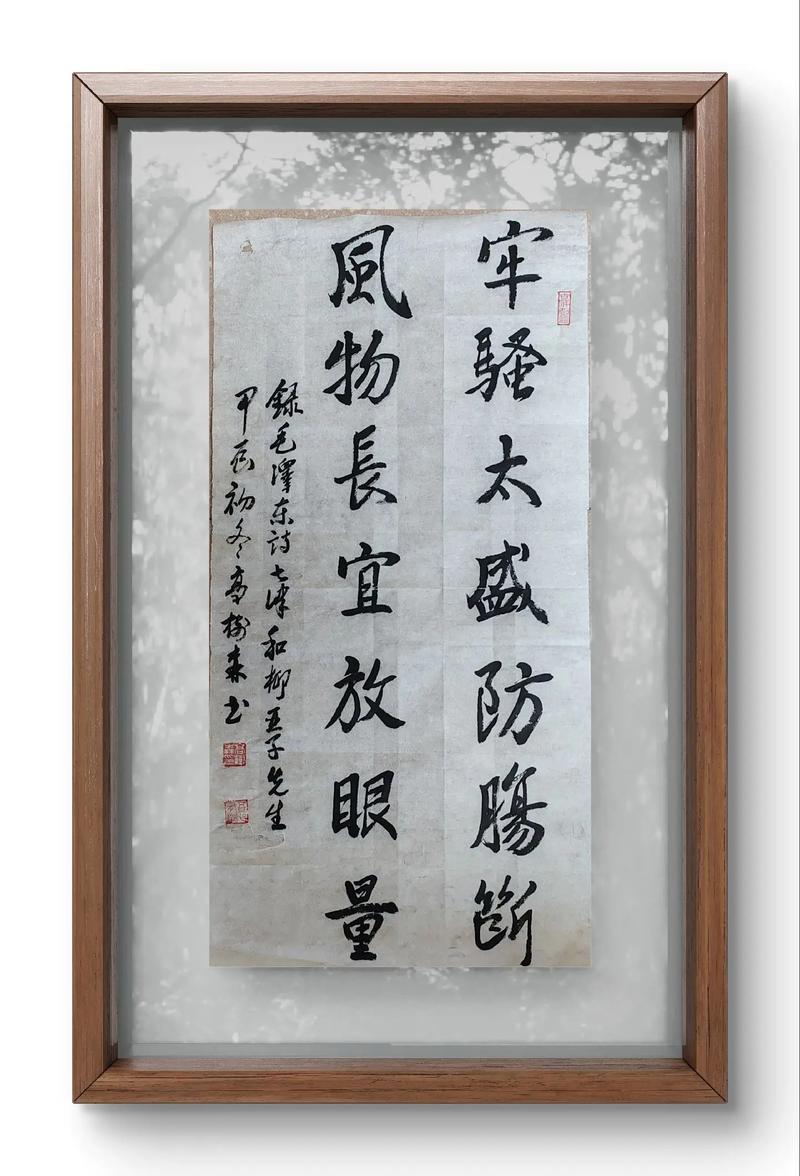 牢騷太盛防腸斷
風物長宜放眼量
録毛澤东詩七律和柳亚子先生
甲辰初冬高樹森书